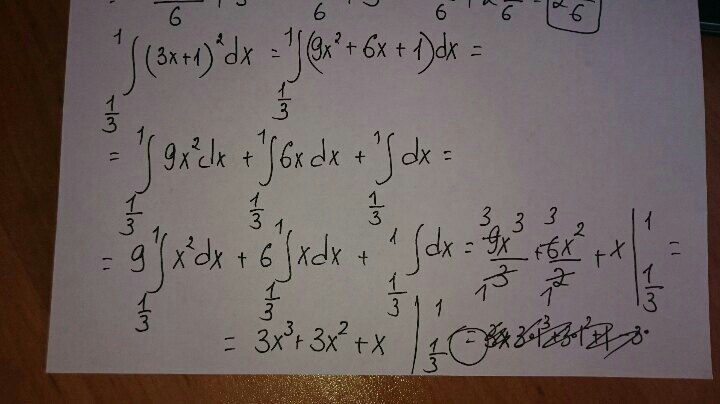 ∫_{1/3}^{1} (3x+1)² dx = ∫_{1/3}^{1} (9x² + 6x + 1) dx =
= ∫_{1/3}^{1} 9x² dx + ∫_{1/3}^{1} 6x dx + ∫_{1/3}^{1} dx =
= 9 ∫_{1/3}^{1} x² dx + 6 ∫_{1/3}^{1} x dx + ∫_{1/3}^{1} dx = 9x³/3 + 6x²/2 + x |_{1/3}^{1} =
= 3x³ + 3x² + x |_{1/3}^{1} =